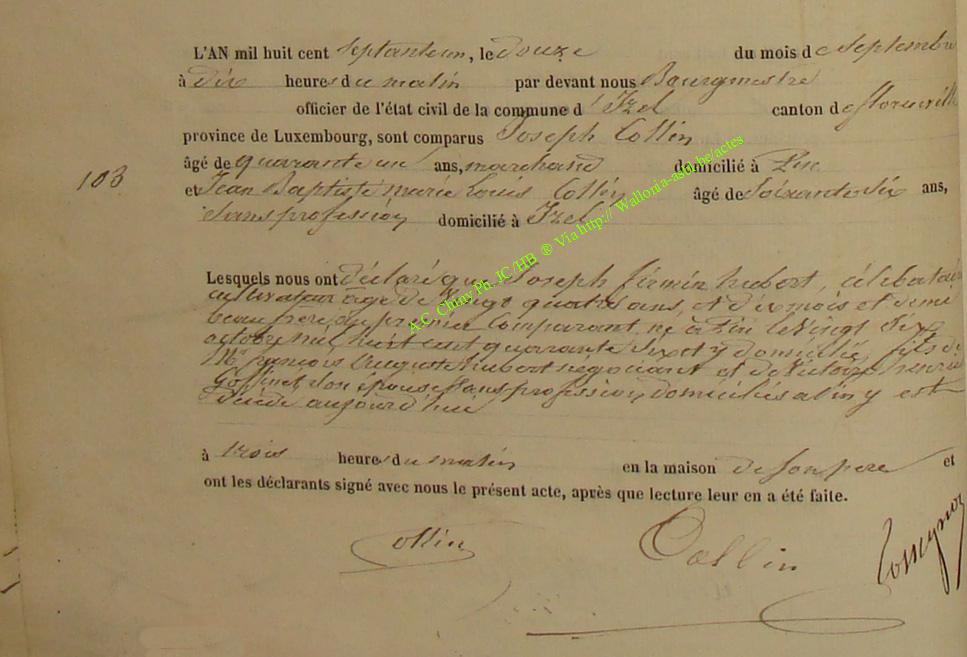 L'AN mil huit cent septanteun, le douze du mois de septembre
à dix heures du matin par devant nous Bourgmestre
officier de l'état civil de la commune d'Izel canton de florenville
province de Luxembourg, sont comparus Joseph Collin
âgé de quarante un ans, marchand domicilié à Pin
103
et Jean Baptiste marie Louis Collin âgé de Soixante Six ans,
Sans profession domicilié à Izel
Lesquels nous ont déclaré que Joseph firmin hubert, célibataire
cultivateur âgé de Vingt quatre ans, et dix mois et demi
beau frère du premier Comparant, né à Pin le Vingt Six
octobre mil huit cent quarante Six et y domicilié, fils de
françois Auguste hubert negociant et de Victoire
Goffinet Son epouse Sans profession, domiciliés a Pin y est
décédé aujourd'hui
à trois heures du matin en la maison de Son pere et
ont les déclarants signé avec nous le présent acte, après que lecture leur en a été faite.
Collin Collin
A.C. Chiny Ph. JC/HB ® Via http:// Wallonia-asbl.be/actes